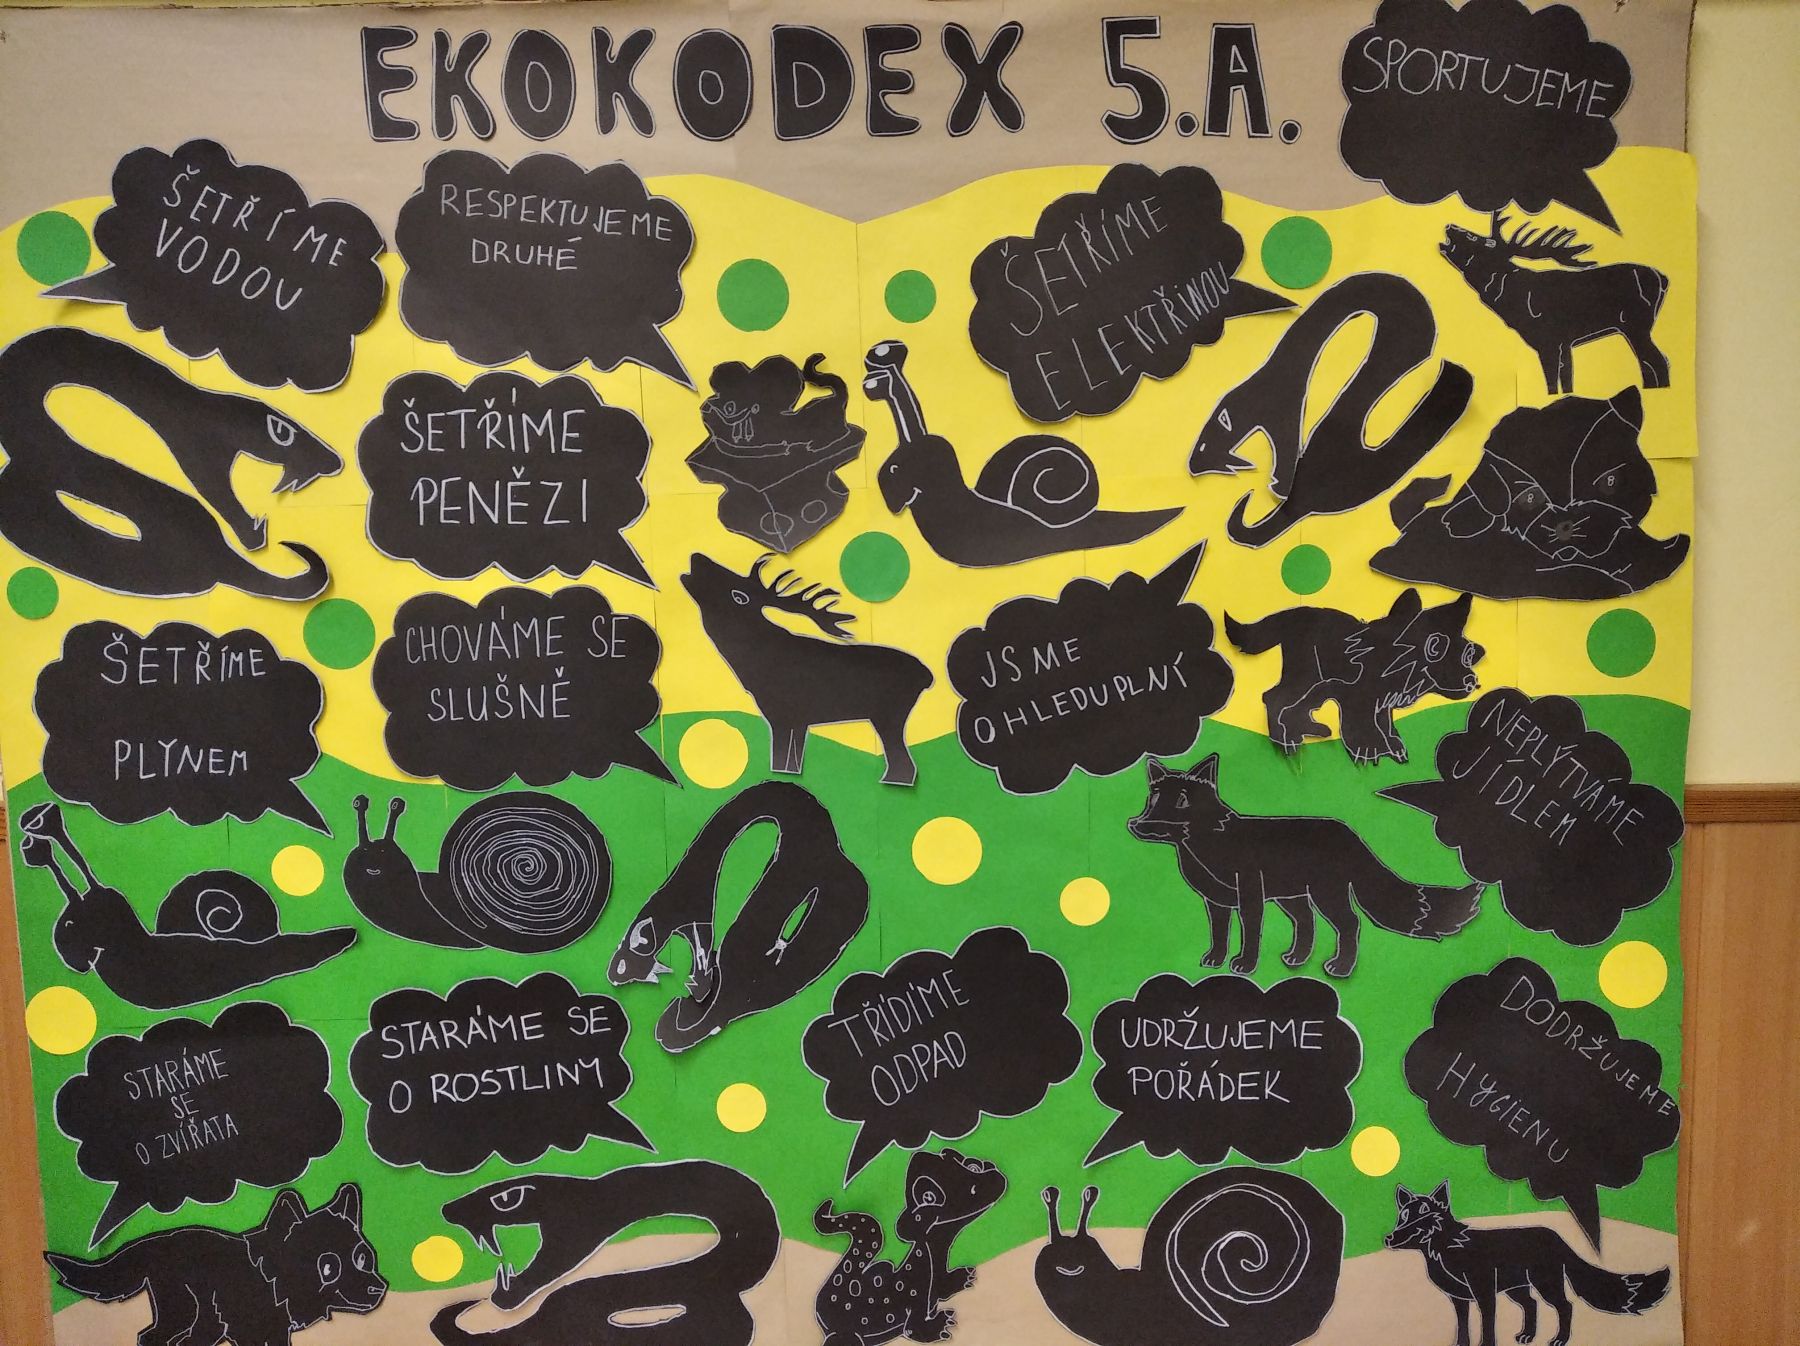 EKOKODEX 5.A.
SPORTUJEME
ŠETŘÍME
VODOU
RESPEKTUJEME
DRUHÉ
ŠETŘÍME
ELEKTŘINOU
ŠETŘÍME
PENĚZI
ŠETŘÍME
PLYNEM
CHOVÁME SE
SLUŠNĚ
JSME
OHLEDUPLNÍ
NEPLÝTVÁME
JÍDLEM
STARÁME
SE
O ZVÍŘATA
STARÁME SE
O ROSTLINY
TŘÍDÍME
ODPAD
UDRŽUJEME
POŘÁDEK
DODRŽUJEME
HYGIENU